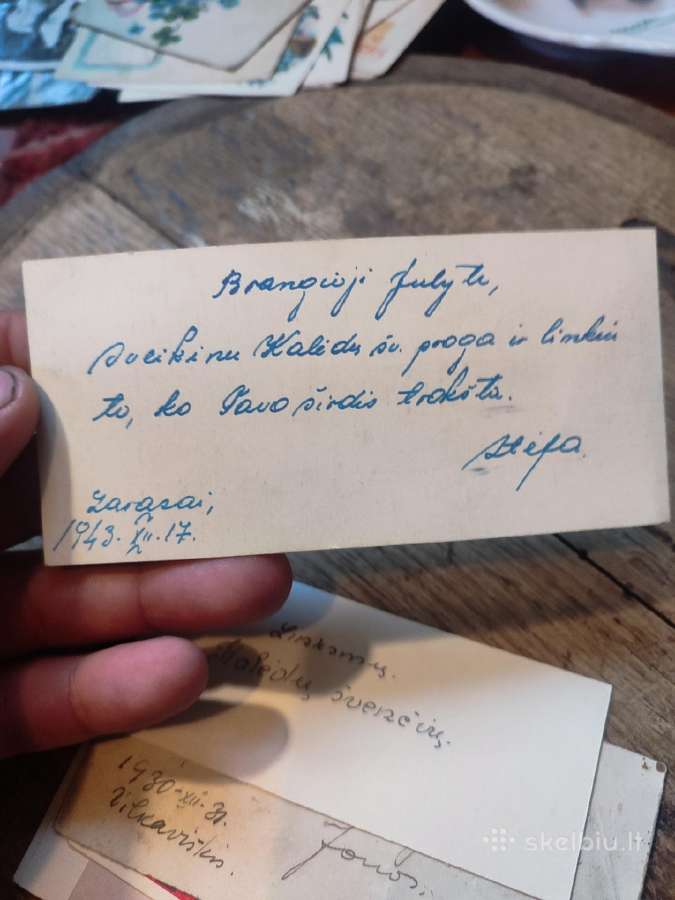 Brangioji Julyte,
sveikinu Kalėdų šv. proga ir linkiu
to, ko Tavo širdis trokšta.
Stefa.
Zarasai,
1943. XII. 17.
Linksmų
Kalėdų švenčių.
1930-XII-31.
Vilkaviškis.
Jonas.
skelbiu.lt